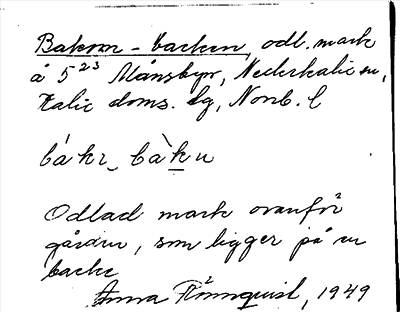 Bakom-backen, odl. mark
å 5²³ Månsbyn, Nederkalix sn,
Kalix doms. lg, Norrb. l
Odlad mark ovanför
gården, som ligger på en
backe
Anna Rönnquist, 1949